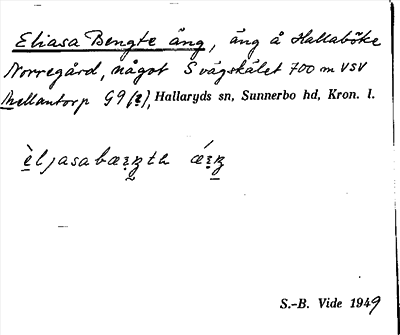 Eliasa Bengte äng, äng å Hallaböke
Norregård, något S vägskälet 700 m VSV
Mellantorp G9 (?), Hallaryds sn, Sunnerbo hd, Kron. l.
S.-B. Vide 1949